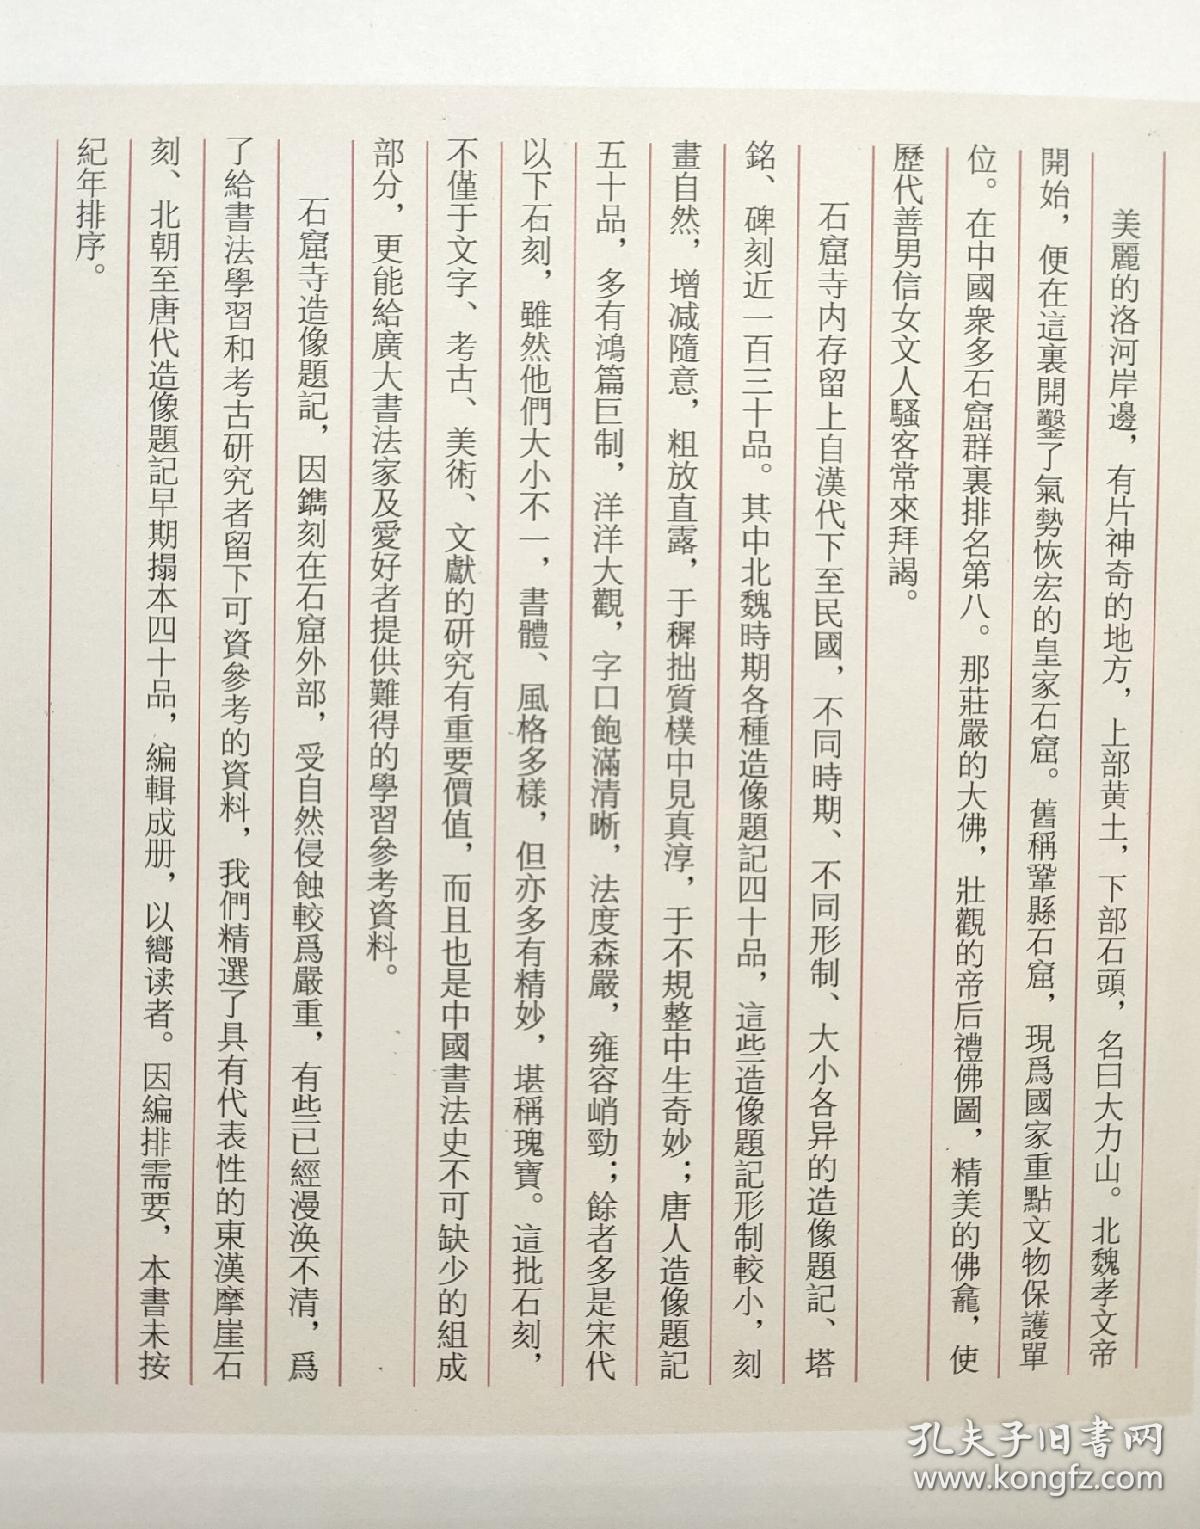 美麗的洛河岸邊，有片神奇的地方，上部黄土，下部石頭，名曰大力山。北魏孝文帝
開始，便在這裏開鑿了氣勢恢宏的皇家石窟。舊稱鞏縣石窟，現爲國家重點文物保護單
位。在中國衆多石窟群裏排名第八。那莊嚴的大佛，壯觀的帝后禮佛圖，精美的佛龕，使
歷代善男信女文人騷客常來拜謁。
石窟寺内存留上自漢代下至民國，不同時期、不同形制、大小各异的造像題記、塔
銘、碑刻近一百三十品。其中北魏時期各種造像題記四十品，這些造像題記形制較小，刻
畫自然，增减隨意，粗放直露，于穉拙質樸中見真淳，于不規整中生奇妙；唐人造像題記
五十品，多有鴻篇巨制，洋洋大觀，字口飽滿清晰，法度森嚴，雍容峭勁；餘者多是宋代
以下石刻，雖然他們大小不一，書體、風格多樣，但亦多有精妙，堪稱瑰寶。這批石刻，
不僅于文字、考古、美術、文獻的研究有重要價值，而且也是中國書法史不可缺少的組成
部分，更能給廣大書法家及愛好者提供難得的學習參考資料。
石窟寺造像題記，因鐫刻在石窟外部，受自然侵蝕較爲嚴重，有些已經漫涣不清，爲
了給書法學習和考古研究者留下可資參考的資料，我們精選了具有代表性的東漢摩崖石
刻、北朝至唐代造像題記早期搨本四十品，編輯成册，以嚮读者。因編排需要，本書未按
紀年排序。
孔夫子旧書网
www.kongfz.com